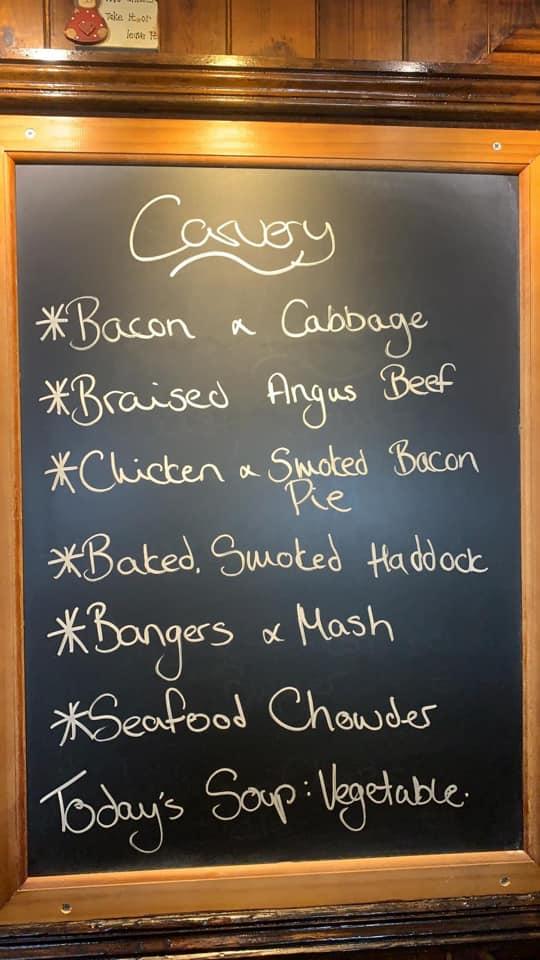 Take it..or
leave it
Carvery
*Bacon & Cabbage
*Braised Angus Beef
*Chicken & Smoked Bacon
Pie
*Baked. Smoked Haddock
*Bangers & Mash
*Seafood Chowder
Today's Soup: Vegetable.